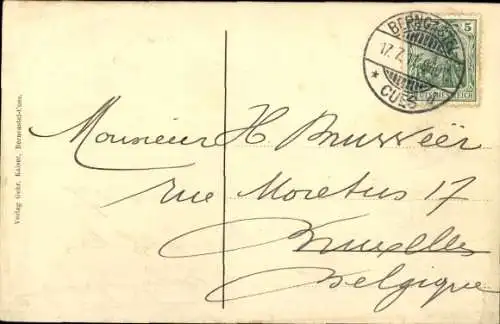 BERNCASTEL
5
17.7.
* CUES
DEUTSCHES REICH
Monsieur H Brusseër
rue Moretus 17
Bruxelles
Belgique
Verlag Gebr. Kaiser, Berncastel-Cues.